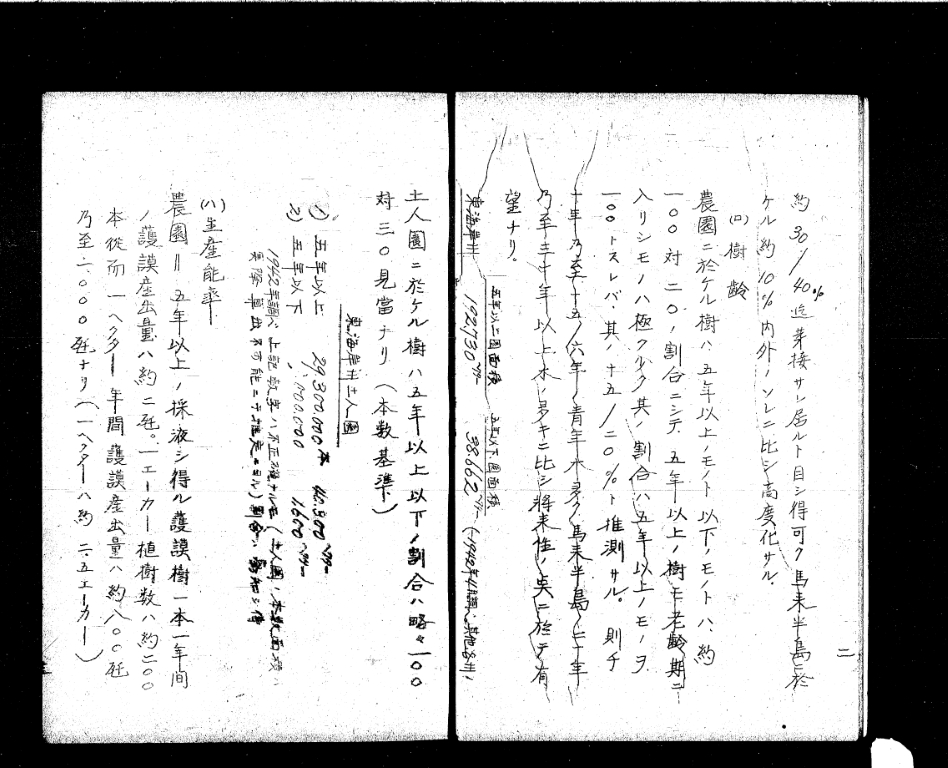 二
約30%/40%迄芽接サレ居ルト目シ得可ク馬来半島ニ於
ケル約10%内外ノソレニ比シ高度化サル、
(ロ)樹齢
農園ニ於ケル樹ハ五年以上ノモノト以下ノモノトハ、約
一〇〇対二〇ノ割合ニシテ五年以上ノ樹モ老齢期ニ
入リシモノハ極ク少ク其ノ割合ハ五年以上ノモノヲ
一〇〇トスレバ、其ノ十五/二〇%ト推測サル。則チ
十年乃至十五/六年ノ青年木多ク馬来半島ノ二十年
乃至三十年以上木ノ多キニ比シ将来性ノ点ニ於テ有
望ナリ。
五年以上園面積 五年以下園面積
東海岸州 192,730ヘクター 38,662ヘクター
土人園ニ於ケル樹ハ五年以上以下ノ割合ハ略々一〇〇
対三〇見当ナリ(本数基準)
東海岸州土人園
1) 五年以上 29,300,000本 48,900ヘクター
2) 五年以下 ,000,000 1,600ヘクター
(ハ)生産能率
農園‖五年以上ノ採液シ得ル護謨樹一本一年間
ノ護謨産出量ハ約二瓩。一エーカー植樹数ハ約二〇〇
本従而一ヘクター年間護謨産出量ハ約八〇〇瓩
乃至一、〇〇〇瓩ナリ(一ヘクターハ約二.五エーカー)